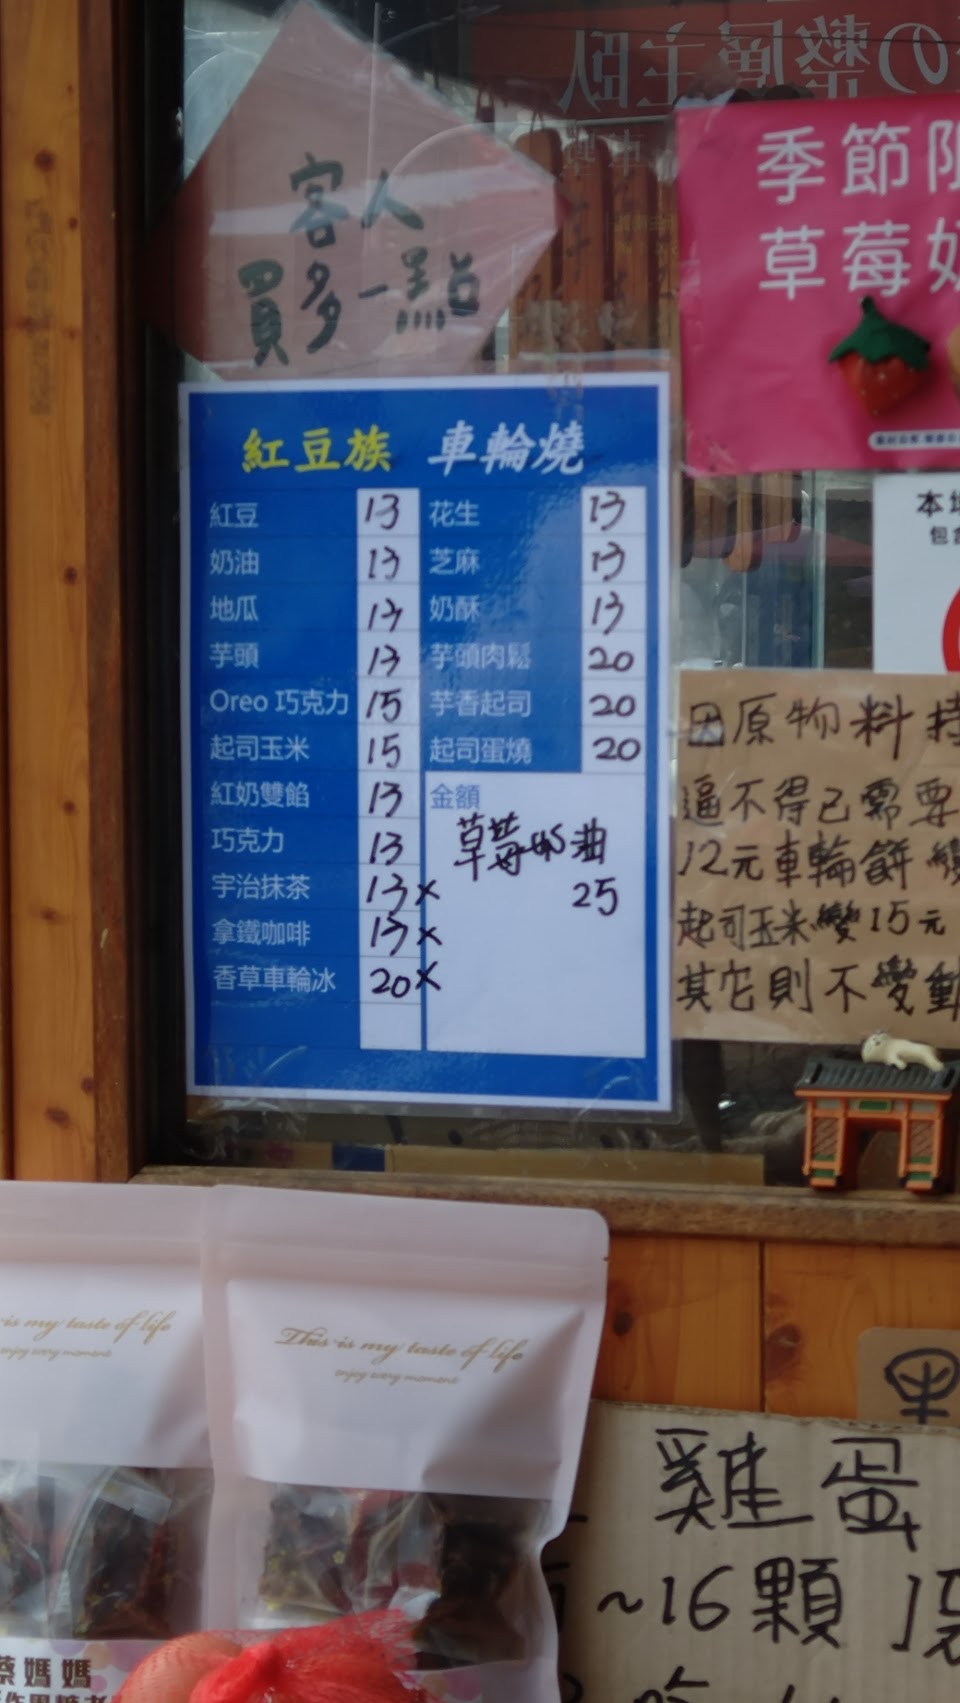 客人
買多一點
季節限
草莓奶
紅豆族 車輪燒
紅豆 13 花生 13
奶油 13 芝麻 13
地瓜 13 奶酥 13
芋頭 13 芋頭肉鬆 20
Oreo 巧克力 15 芋香起司 20
起司玉米 15 起司蛋燒 20
紅奶雙餡 13 金額
巧克力 13 草莓奶油
宇治抹茶 13 x 25
拿鐵咖啡 13 x
香草車輪冰 20 x
本地
包含
因原物料持
逼不得已需要
12元車輪餅變
起司玉米變15元
其它則不變動
is my taste of life
enjoy every moment
This is my taste of life
enjoy every moment
黑
雞蛋
~16顆 1袋
蔡媽媽